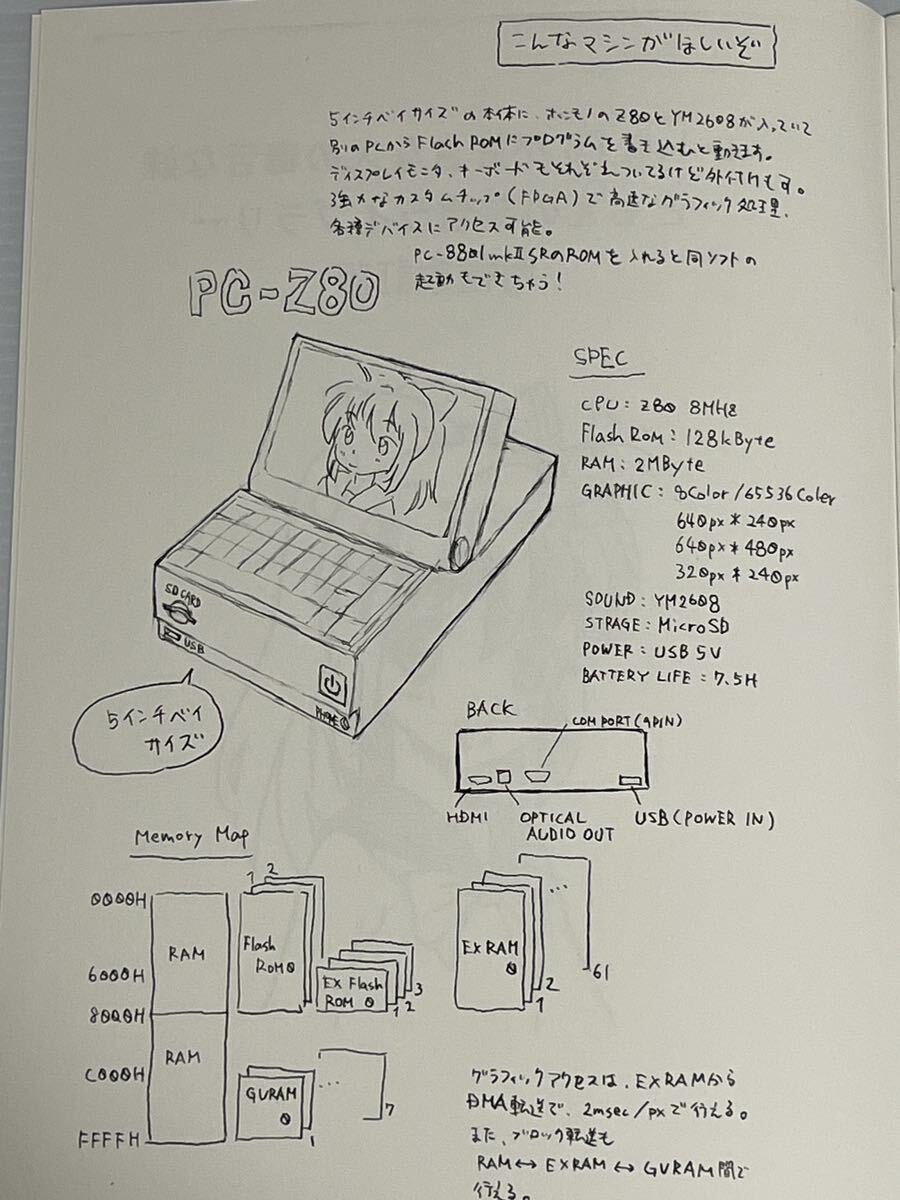 こんなマシンがほしいぞ
5インチベイサイズの本体に、ホンモノのZ80とYM2608が入っていて
別のPCからFlash ROMにプログラムを書き込むと動きます。
ディスプレイモニタ、キーボードもそれぞれついてるけど外付けもす。
強力なカスタムチップ(FPGA)で高速なグラフィック処理、
各種デバイスにアクセス可能。
PC-8801mkⅡSRのROMを入れると同ソフトの
起動もできちゃう!
PC-Z80
SD CARD
USB
PHONE
5インチベイ
サイズ
SPEC
CPU: Z80 8MHz
Flash ROM: 128kByte
RAM: 2MByte
GRAPHIC: 8Color/65536Color
640px*240px
640px*480px
320px*240px
SOUND: YM2608
STRAGE: MicroSD
POWER: USB 5V
BATTERY LIFE: 7.5H
BACK
COM PORT(9PIN)
HDMI
OPTICAL
AUDIO OUT
USB(POWER IN)
Memory Map
0000H
6000H
8000H
C000H
FFFFH
RAM
RAM
Flash
ROM0
1
2
EX Flash
ROM 0
1
2
3
EXRAM
0
1
2
...
61
GVRAM
0
1
...
7
グラフィックアクセスは、EXRAMから
DMA転送で、2msec/pxで行える。
また、ブロック転送も
RAM↔EXRAM↔GVRAM間で
行える。